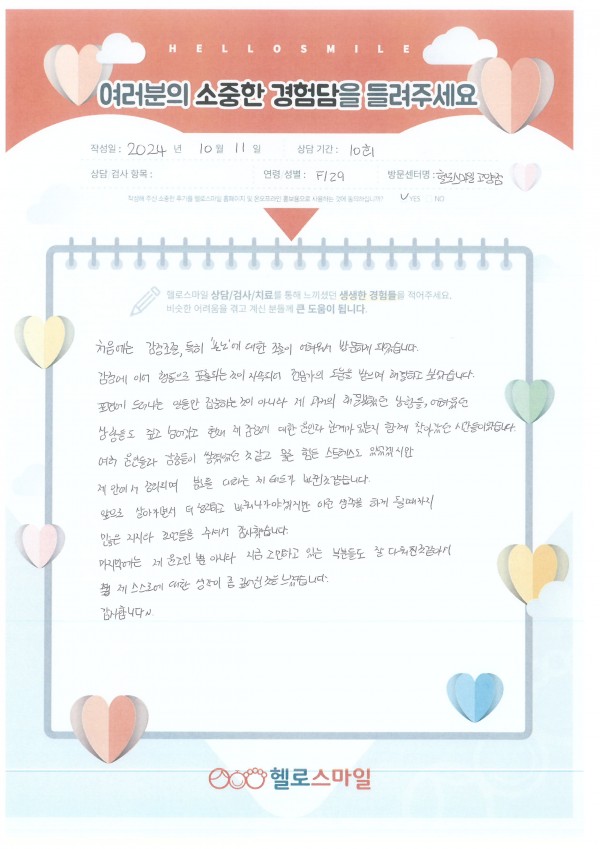 HELLOSMILE
여러분의 소중한 경험담을 들려주세요
작성일 : 2024 년 10 월 11 일 상담 기간 : 10회
상담 검사 항목 : 연령 성별 : F/29 방문센터명 : 헬로스마일 고양점
작성해 주신 소중한 후기를 헬로스마일 홈페이지 및 온오프라인 홍보용으로 사용하는 것에 동의하십니까? YES NO
헬로스마일 상담/검사/치료를 통해 느끼셨던 생생한 경험들을 적어주세요.
비슷한 어려움을 겪고 계신 분들께 큰 도움이 됩니다.
처음에는 감정조절, 특히 '분노'에 대한 조절이 어려워서 방문하게 되었습니다.
감정에 이어 행동으로 표출되는 것이 지속되어 전문가의 도움을 받으며 해결하고 싶었습니다.
표면에 드러나는 행동만 집중하는 것이 아니라 제 과거의 상황들, 어려웠던
상황들도 짚고 넘어갔고 현재 제 감정에 대한 원인과 한계가 있는지 함께 찾아갔던 시간들이었습니다.
여러 원인들과 감정들이 쌓였었던 것 같고 물론 힘든 스트레스도 있었겠지만
제 안에서 정리되며 분노를 대하는 제 태도가 바뀐것같습니다.
앞으로 살아가면서 더 노력하고 바꿔나가야겠지만 이런 생각을 하게 될때까지
많은 지지와 조언들을 주셔서 감사했습니다.
마지막에는 제 원고민 뿐 아니라 지금 고민하고 있는 부분들도 잘 다뤄진것같아서
제 스스로에 대한 생각이 좀 깊어진 것을 느꼈습니다.
감사합니다~
헬로스마일